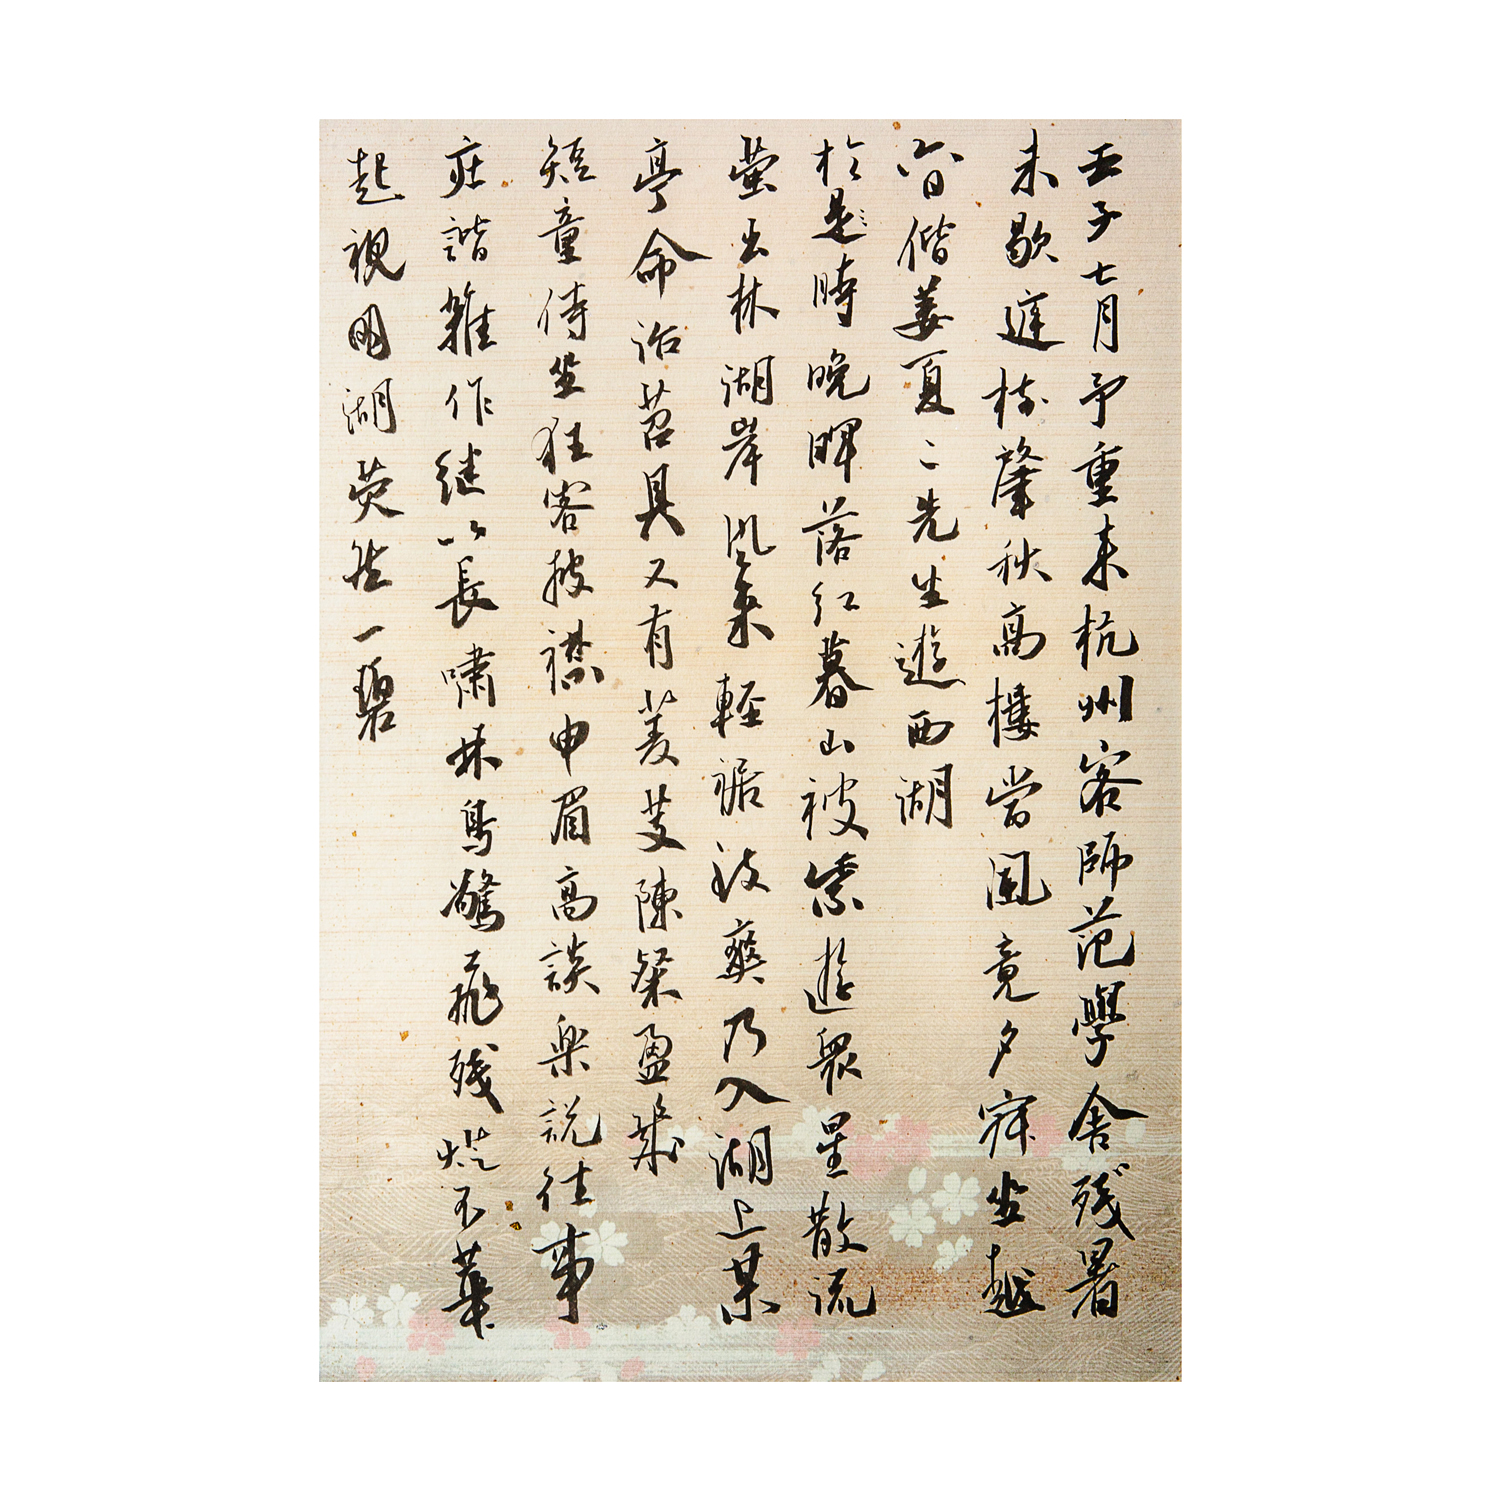 壬子七月予重来杭州客師范學舍残暑
未歇庭樹肇秋高樓當風竟夕寂坐越
六日偕姜夏二先生遊西湖
於是時晚暉落紅暮山被紫遊衆星散流
螢出林湖岸風来輕裾致爽乃入湖上某
亭命治茗具又有菱芰陳粲盈幾
短童侍坐狂客披襟申眉高談楽説往事
庄諧雜作継以長嘯林鳥驚飛残燈不華
起視明湖荧然一碧